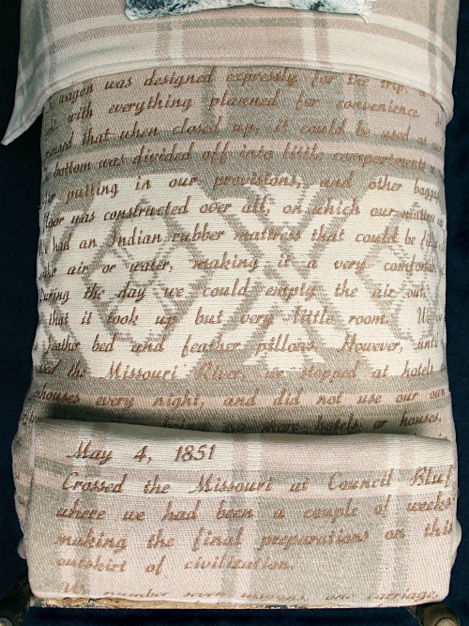 wagon was designed expressly for the trip,
with everything planned for convenience.
that when closed up, it could be used as
bottom was divided off into little compartments
putting in our provisions, and other
was constructed over all, on which our mattress
had an Indian rubber mattress that could be
air or water, making it a very
During the day we could empty the air out,
that it took up but very little room.
feather bed and feather pillows. However, until
the Missouri River, we stopped at hotels
every night, and did not use our own
no more hotels or houses,
May 4, 1851
Crossed the Missouri at Council
where we had been a couple of weeks
making the final preparations on this
outskirt of civilization.
We number seven wagons, one carriage,